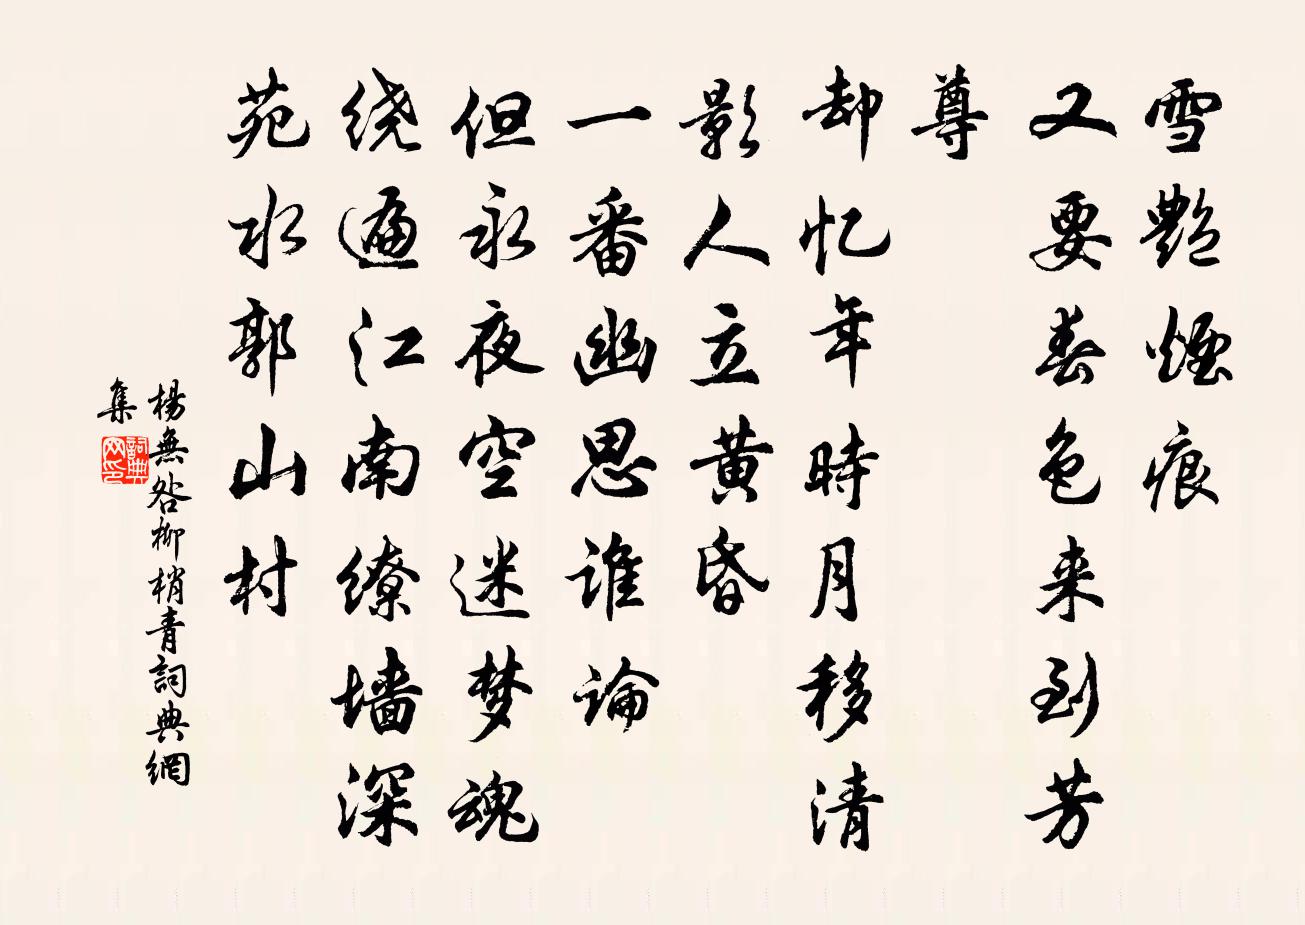 雪艷煙痕
又要春色来到芳
尊
却忆年時月移清
影人立黄昏
一番幽思谁論
但永夜空迷梦魂
绕遍江南缭墙深
苑水郭山村
楊無咎柳梢青詞典網
集
詞典
网印